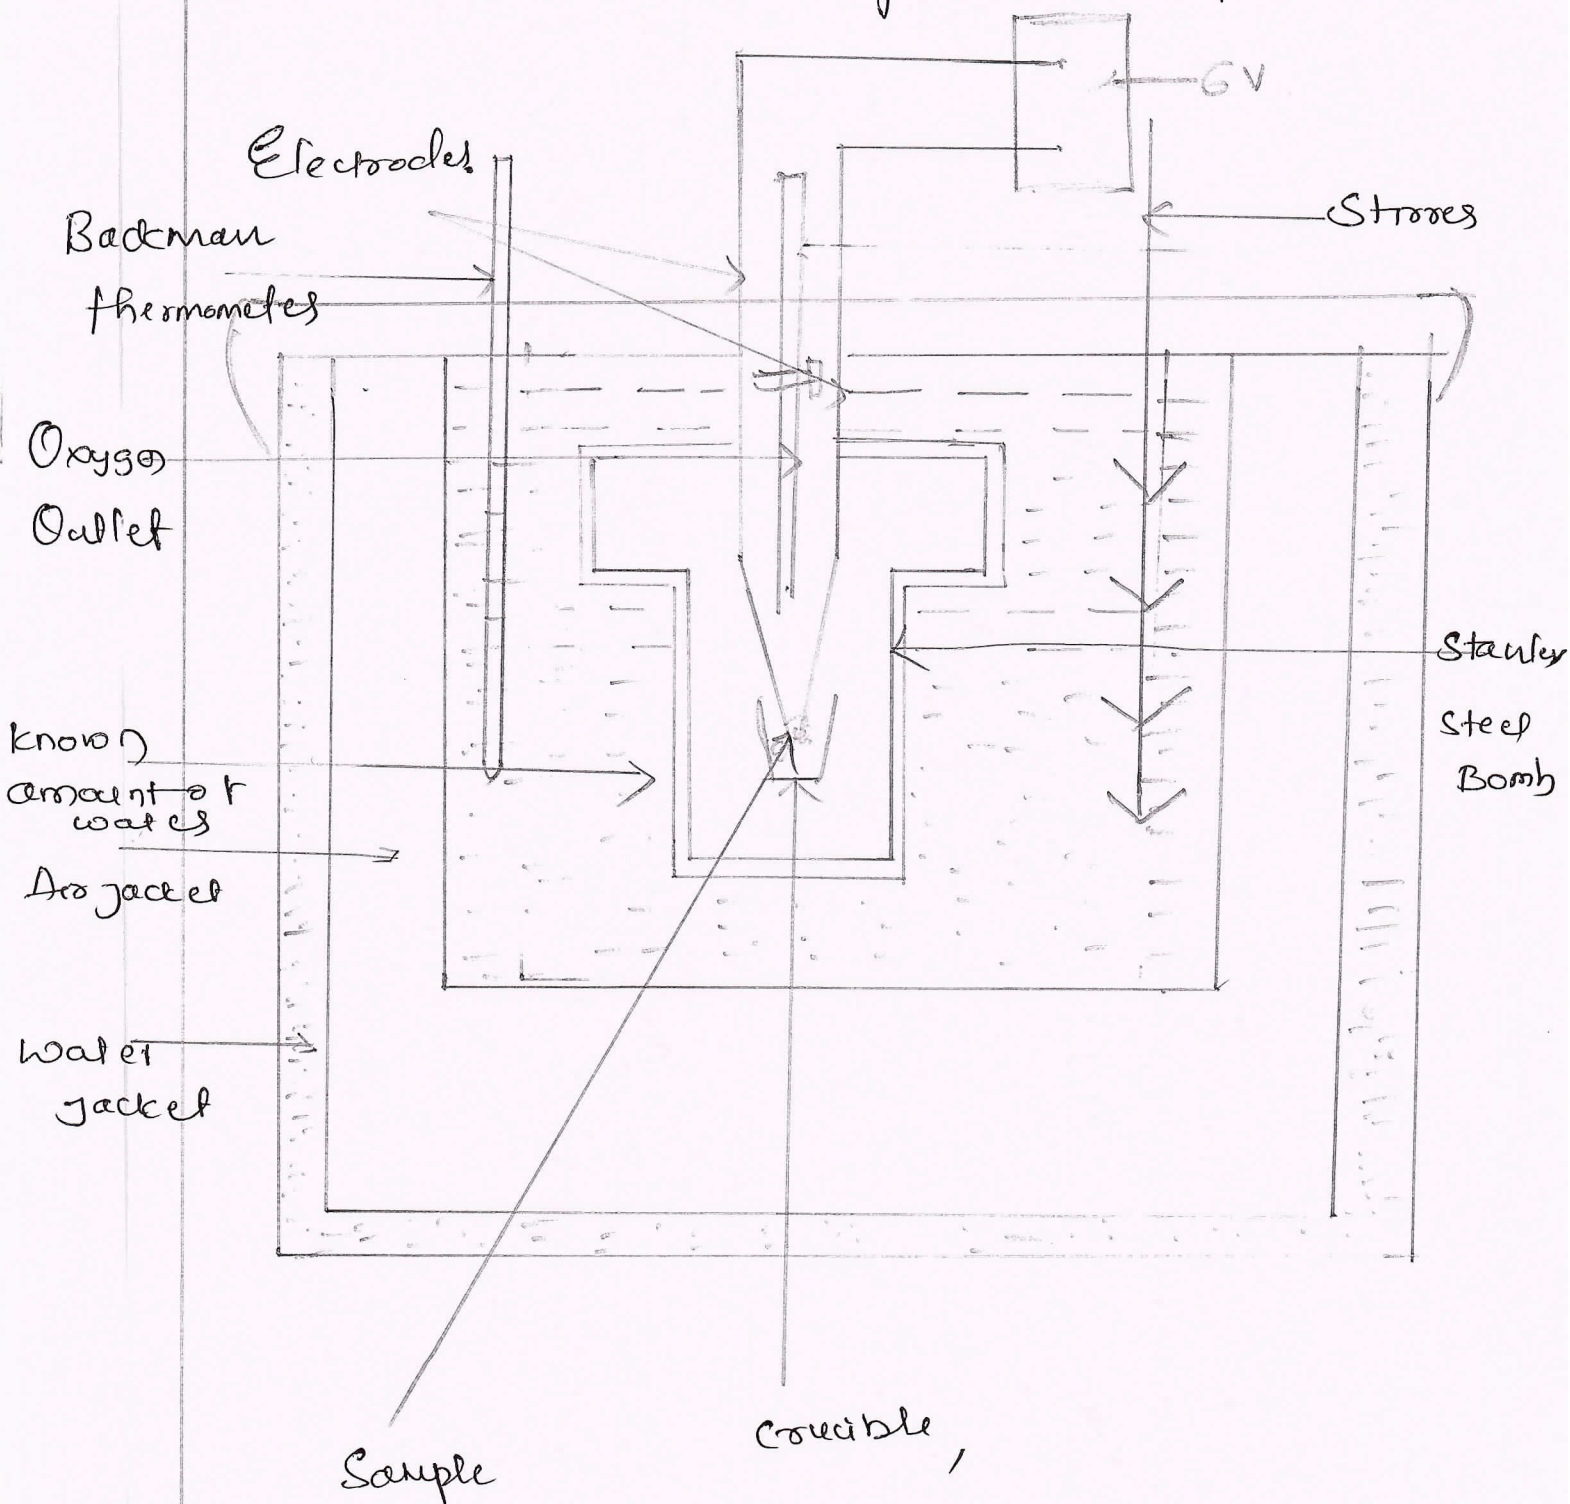 6V
Electrodes
Backman
thermometer
Stirrer
Oxygen
Outlet
Stainles
Steel
Bomb
Known
amount of
water
Air jacket
Water
jacket
Crucible,
Sample